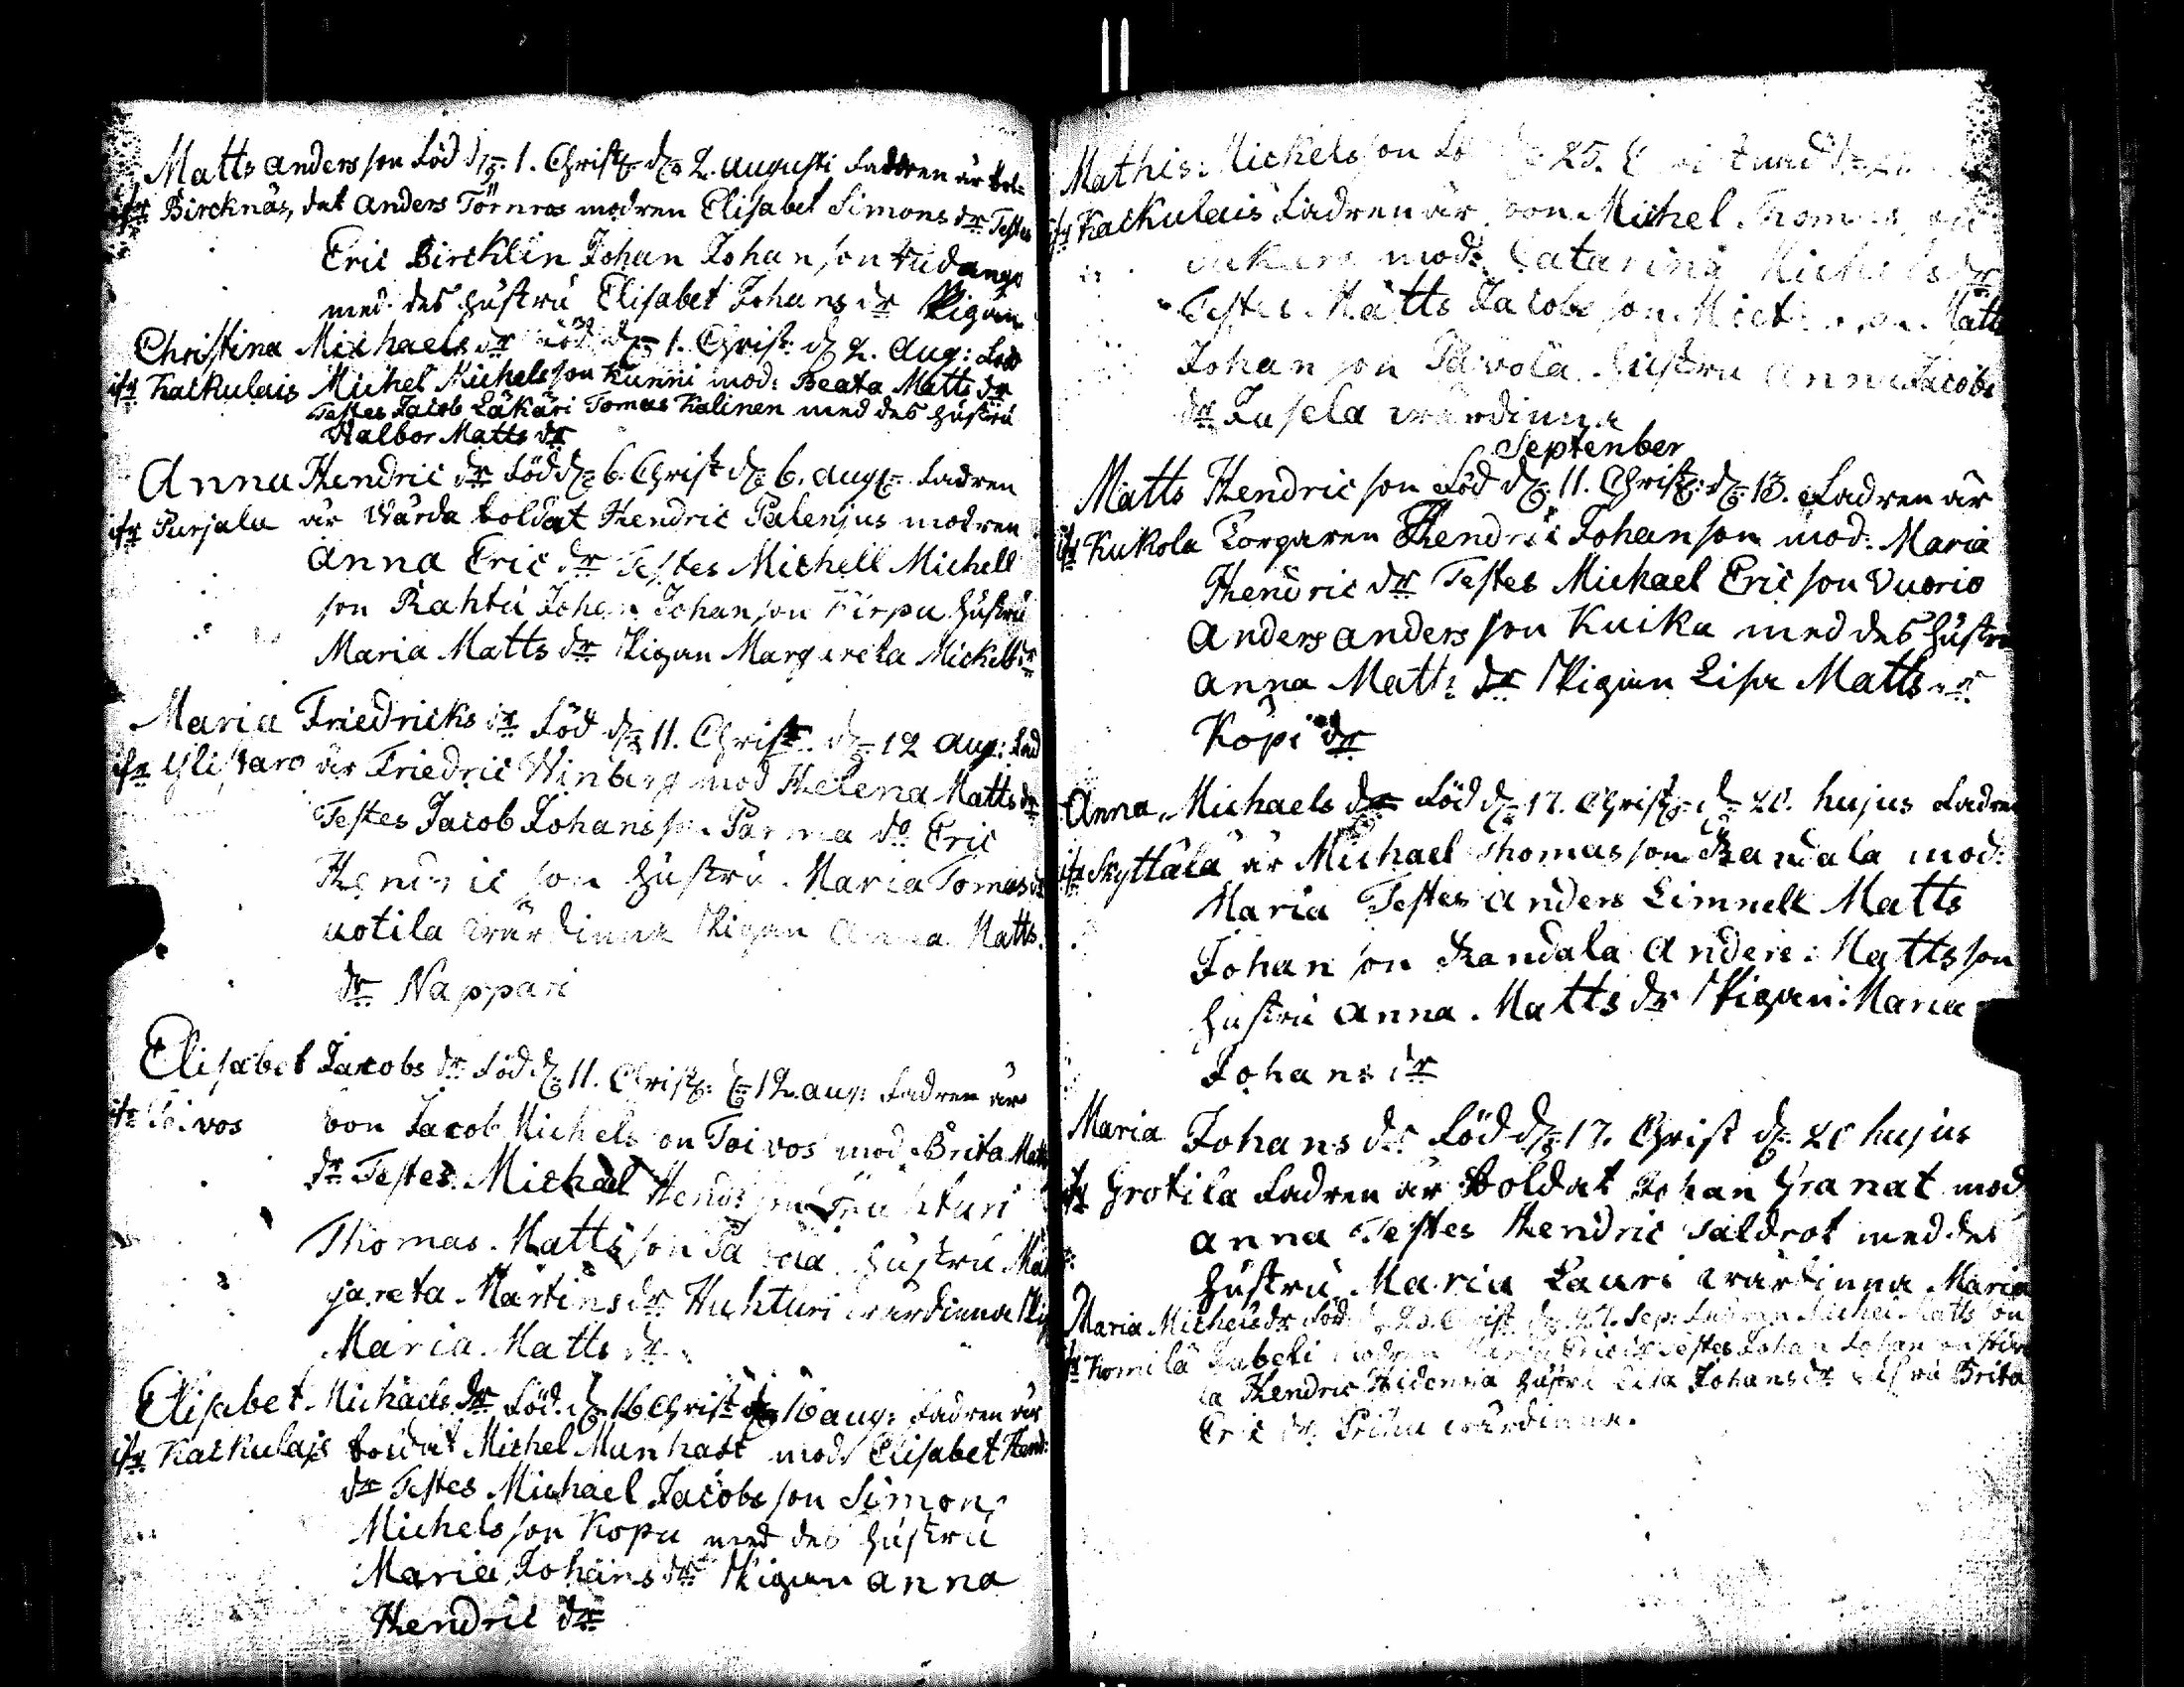 Matts andersson Föd d. 1. Christ. d. 2. augusti Fadren är Sol=
ifr Bircknäs, dat anders Törnros modren Elisabet Simons dr Testes
Eric Bircklin Johan Johansson
med des hustru Elisabet Johans dr Pigan
Christina Michaels dr Föd d. 1. Christ. d. 2. Aug: Fad
ifr Kaikulais Michel Michelsson Kunni mod: Beata Matts dr
Testes Jacob Läkäri Tomas Kalinen med des hustru
Walbor Matts dr
Anna Hendric dr Föd d. 6. Christ d. 6. aug. Fadren
ifr Purjala är Wärda Soldat Hendric Palenjus modren
anna Eric dr Testes Michell Michell
son Rahtu Johan Johansson Kirpu hustru
Maria Matts dr Pigan Margareta Mickels dr
Maria Friedricks dr Föd d. 11. Christ. d. 12 aug: Fad
ifr Ylistaro är Friedric Winberg mod Helena Matts dr
Testes Jacob Johansson Parma do Eric
Hendricson hustru Maria Tomas dr
uotila wärdinna Pigan Anna Matts
dr Nappari
Elisabet Jacobs dr Föd d. 11. Christ. d. 12. aug: Fadren är
ifr Toivos bon Jacob Michelsson Toivos mod. Brita Matts
dr Testes. Michael Hend: son Huhturi
Thomas Mattsson hustru Mar
gareta Martins dr Huhturi wärdinna Pig
Maria Matts dr
Elisabet Michaels dr Föd. d. 16 Christ d. 16 aug: Fadren är
ifr Kaikulais Soldat Michel Munhast mod. Elisabet Hend:
dr Testes Michael Jacobsson Simon
Michelsson Kopu med des hustru
Maria Johans dr Pigan anna
Hendric dr
Mathis: Mickelsson Föd d. 25.
ifr Kaikulais Fadren är bon Michel Thomas
mod: Catarina Michels dr
Testes Matts Jacobsson Matts
Johansson Päivölä hustru Anna Jacobs
dr Jusela wärdinna
September
Matts Hendricson Föd d. 11. Christ. d. 13. Fadren är
ifr Kukola Torparen Hendric Johansson mod. Maria
Hendric dr Testes Mickael Ericson Vuorio
anders andersson Kuika med des hustru
anna Matts dr Pigan Lisa Matts dr
Köpi dr
Anna Michaels dr Föd d. 17. Christ. d. 20. hujus Fadren
ifr Skyttälä är Michael Thomasson Kandala mod:
Maria Testes anders Limnell Matts
Johansson Kandala Anders: Mattsson
hustru anna Matts dr Pigan: Maria
Johans dr
Maria Johans dr Föd d. 17. Christ d. 20 hujus
ifr Grotila Fadren är Soldat Johan Granat mod
anna Testes Hendric Saldrot med des
hustru Maria Lauri wärdinna Maria
Maria Michels dr Föd d. 25. Christ d. 27. Sep: Fadren Michel Mattsson
ifr Komila modren Maria Eric dr Testes Johan Johansson
Hendric hustru Lisa Johans dr hustru Brita
Eric dr Prihti wärdinna.